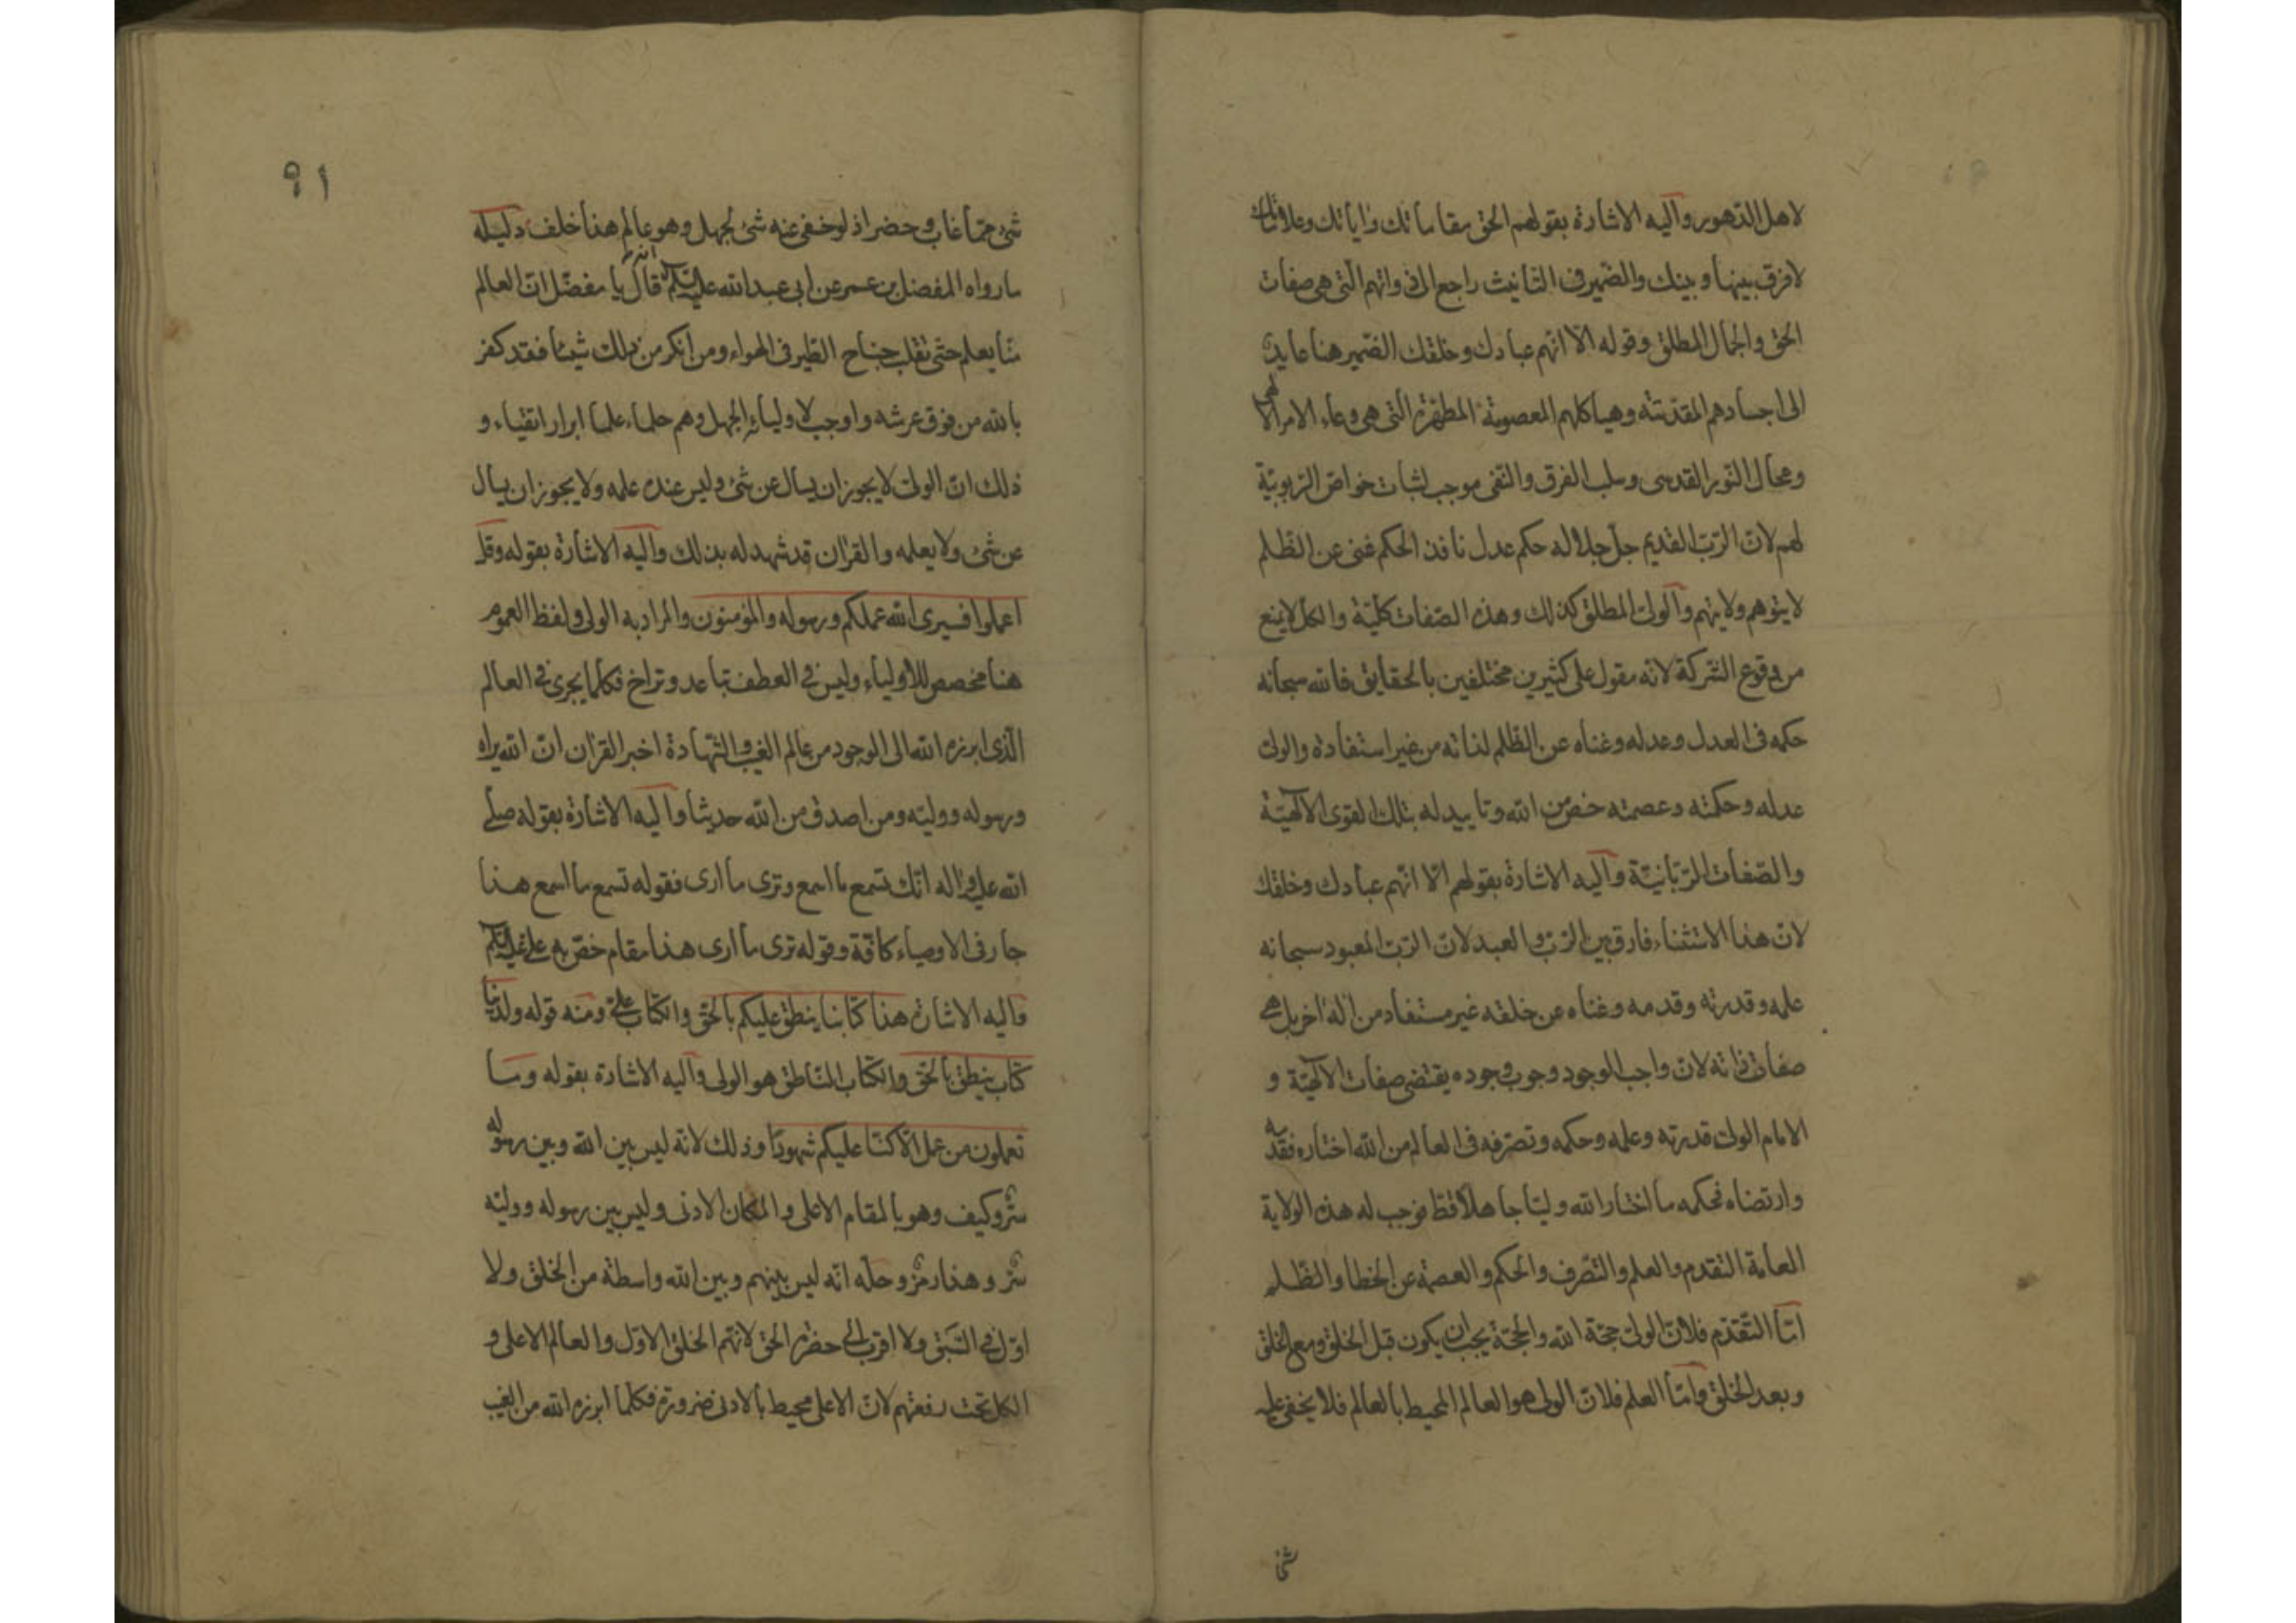 لاهل الدهور واليه الاشارة بقولهم الحق مقاماتك واياتك وعلاماتك
لا فرق بينها وبينك والضمير فى التانيث راجع الى ذواتهم التى هى صفات
الحق والجمال المطلق وقوله الا انهم عبادك وخلقك الضمير هنا عايد
الى اجسادهم المقدسة وهياكلهم المعصومة المطهرة التى هى وعاء الامر الالهى
ومحال النور القدسى وسلب الفرق والنفى موجب لثبات خواص الربوبية
لهم لان الرب القديم جل جلاله حكم عدل نافذ الحكم غنى عن الظلم
لا يتوهم ولا يتهم والولى المطلق كذلك وهذه الصفات كلية والكل لا يمنع
من وقوع الشركة لانه مقول على كثيرين مختلفين بالحقايق فالله سبحانه
حكمه فى العدل وعدله وغناه عن الظلم لذاته من غير استفادة والولى
عدله وحكمته وعصمته خص من الله وتاييد له بتلك القوى الالهية
والصفات الربانية واليه الاشارة بقولهم الا انهم عبادك وخلقك
لان هذا الاستثناء فارق بين الرب والعبد لان الرب المعبود سبحانه
علمه وقدرته وقدمه وغناه عن خلقه غير مستفاد من اله اخر بل هى
صفات ذاته لان واجب الوجود وجوب وجوده يقتضى صفات الالهية و
الامام الولى قدرته وعلمه وحكمه وتصرفه فى العالم من الله اختاره فقدمه
وارتضاه فحكمه ما اختار الله وليا جاهلا قط فوجب له هذه الولاية
العامة التقدم والعلم والتصرف والحكم والعصمة عن الخطا والظلم
اما التقدم فلان الولى حجة الله والحجة يجب ان يكون قبل الخلق ومع الخلق
وبعد الخلق واما العلم فلان الولى هو العالم المحيط بالعالم فلا يخفى عليه
شئ
٩١
شئ مما غاب وحضر اذ لو خفى عنه شئ لجهل وهو عالم هذا خلف دليله
ما رواه المفضل بن عمر عن ابى عبد الله عليه السلم انه قال يا مفضل ان العالم
منا يعلم حتى تقلب جناح الطير فى الهواء ومن انكر من ذلك شيئا فقد كفر
بالله من فوق عرشه واوجب لاوليائه الجهل وهم حلماء علماء ابرار اتقياء و
ذلك ان الولى لا يجوز ان يسال عن شئ وليس عنده علمه ولا يجوز ان يسال
عن شئ ولا يعلمه والقران قد شهد له بذلك واليه الاشارة بقوله وقل
اعملوا فسيرى الله عملكم ورسوله والمؤمنون والمراد به الولى ولفظ العموم
هنا مخصص للاولياء وليس فى العطف تباعد وتراخ فكلما يجرى فى العالم
الذى ابرزه الله الى الوجود من عالم الغيب والشهادة اخبر القران ان الله يراه
ورسوله ووليه ومن اصدق من الله حديثا واليه الاشارة بقوله صلى
الله عليه واله انك تسمع ما اسمع وترى ما ارى فقوله تسمع ما اسمع هذا
جار فى الاوصياء كافة وقوله ترى ما ارى هذا مقام خص به على عليه السلم
واليه الاشارة هذا كتابنا ينطق عليكم بالحق والكتاب على ومنه قوله ولدينا
كتاب ينطق بالحق والكتاب الناطق هو الولى واليه الاشارة بقوله وما
تعملون من عمل الا كنا عليكم شهودا وذلك لانه ليس بين الله وبين رسوله
ستر وكيف وهو بالمقام الاعلى والمكان الادنى وليس بين رسوله ووليه
ستر وهذا رمز وحله انه ليس بينهم وبين الله واسطة من الخلق ولا
اول فى السبق ولا اقرب الى حضرة الحق لانهم الخلق الاول والعالم الاعلى و
الكل تحت رفعتهم لان الاعلى محيط بالادنى ضرورة فكلما ابرزه الله من الغيب